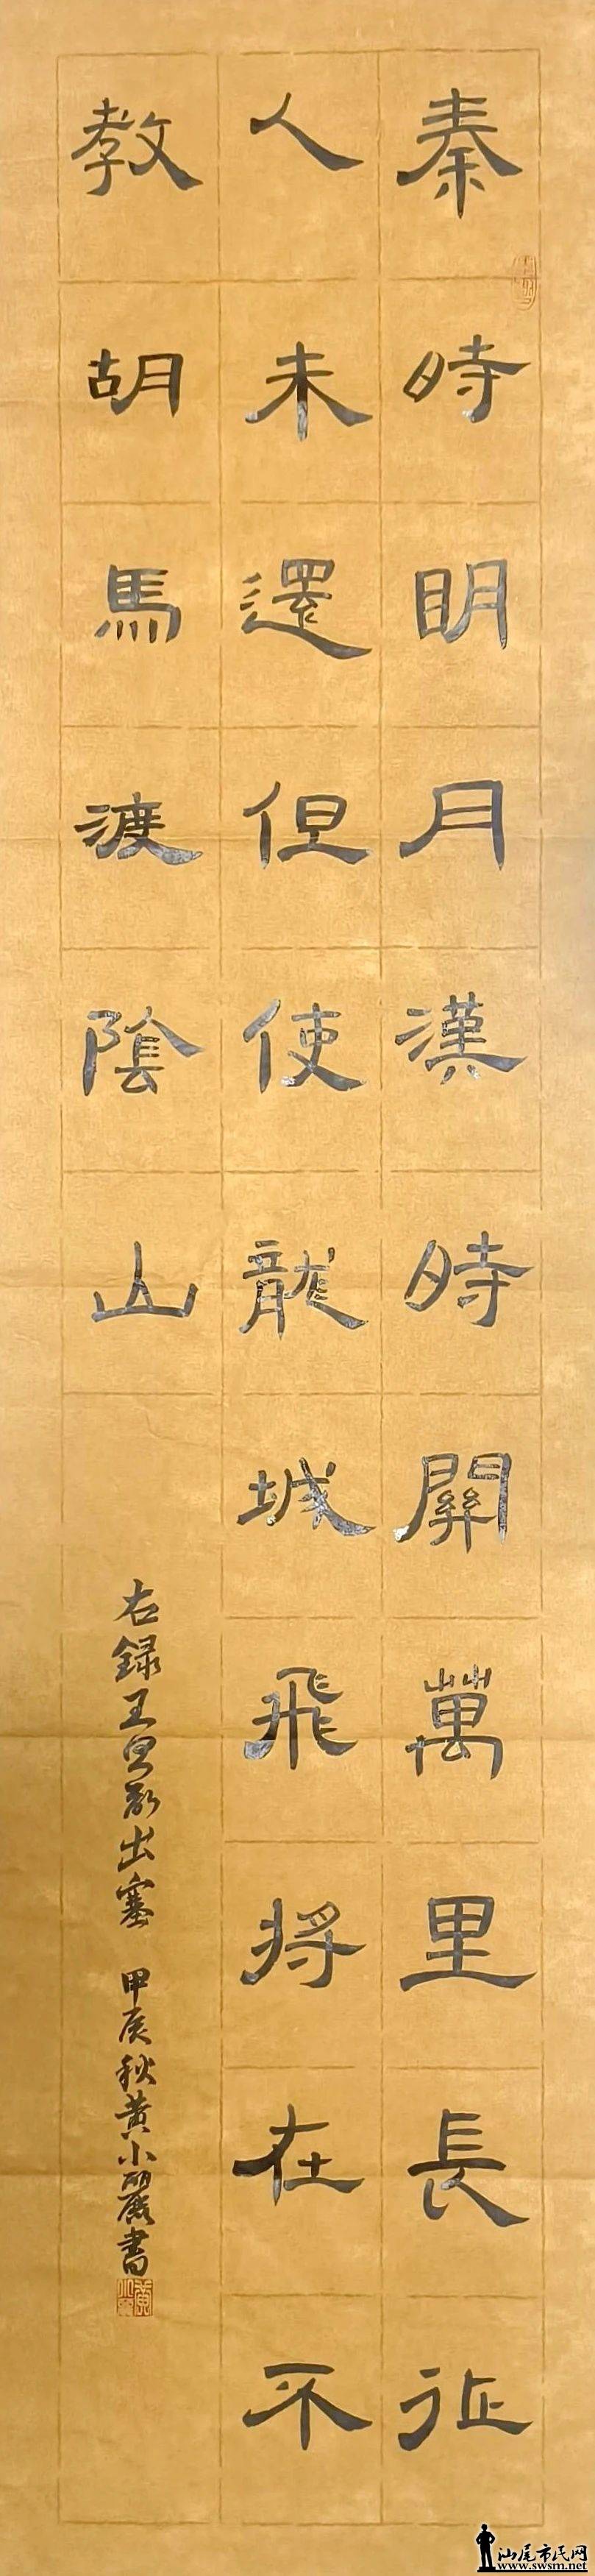 秦時明月漢時關萬里長征
人未還但使龍城飛将在不
教胡馬渡陰山
右録王昌齡出塞 甲辰秋黄小麗書
汕尾市民网
www.swsm.net